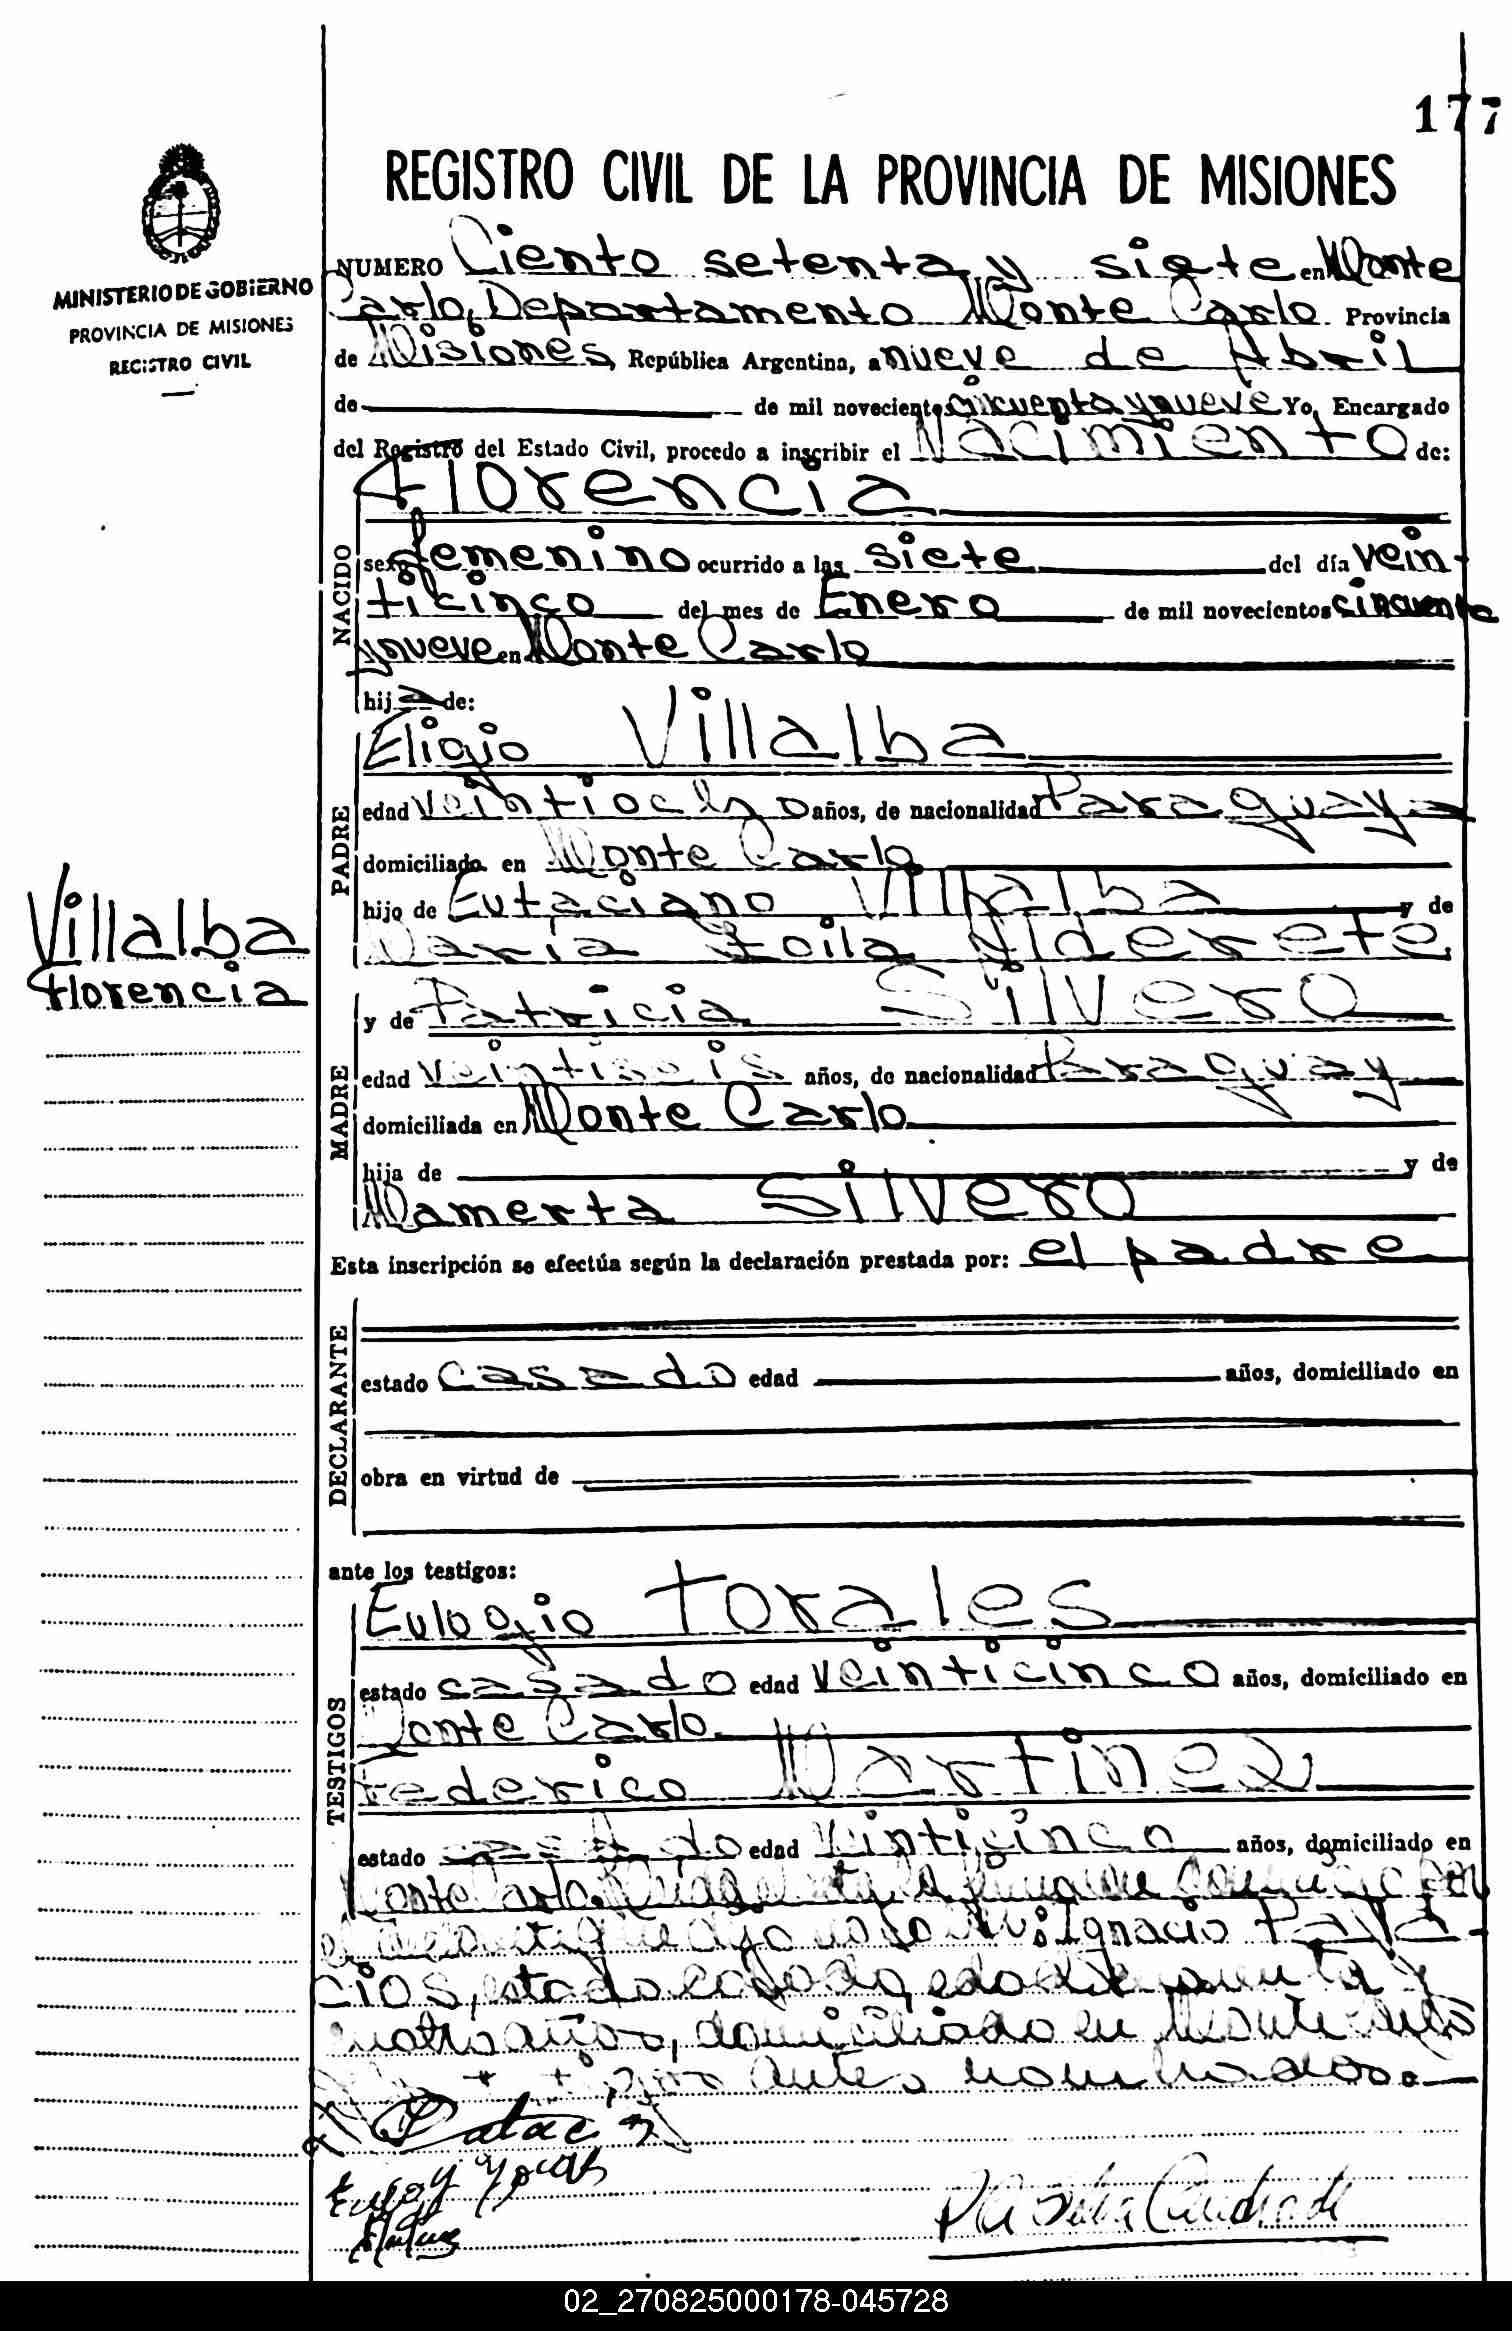 177
REGISTRO CIVIL DE LA PROVINCIA DE MISIONES
MINISTERIO DE GOBIERNO
PROVINCIA DE MISIONES
REGISTRO CIVIL
NUMERO Ciento setenta y siete en Monte
Carlo, Departamento Monte Carlo Provincia
de Misiones, República Argentina, a nueve de Abril
de de mil novecientos cincuenta y nueve Yo, Encargado
del Registro del Estado Civil, procedo a inscribir el Nacimiento de:
NACIDO
Florencia
sexo femenino ocurrido a las siete del día vein-
ticinco del mes de Enero de mil novecientos cincuenta
y nueve en Monte Carlo
hija de:
PADRE
Eligio Villalba
edad veintiocho años, de nacionalidad Paraguaya
domiciliado en Monte Carlo
hijo de Eutaciano Villalba y de
Maria Zoila Alderete
Villalba
Florencia
MADRE
y de Patricia Silvero
edad veintiseis años, de nacionalidad Paraguay
domiciliada en Monte Carlo
hija de y de
Mamerta Silvero
Esta inscripción se efectúa según la declaración prestada por: el padre
DECLARANTE
estado casado edad años, domiciliado en
obra en virtud de
ante los testigos:
TESTIGOS
Eulogio Torales
estado casado edad veinticinco años, domiciliado en
Monte Carlo
Federico Martinez
estado casado edad veinticinco años, domiciliado en
Monte Carlo.
Ignacio Pala-
cios, estado casado, edad cuarenta y
cuatro años, domiciliado en Monte Carlo
antes nombrados.
02_270825000178-045728